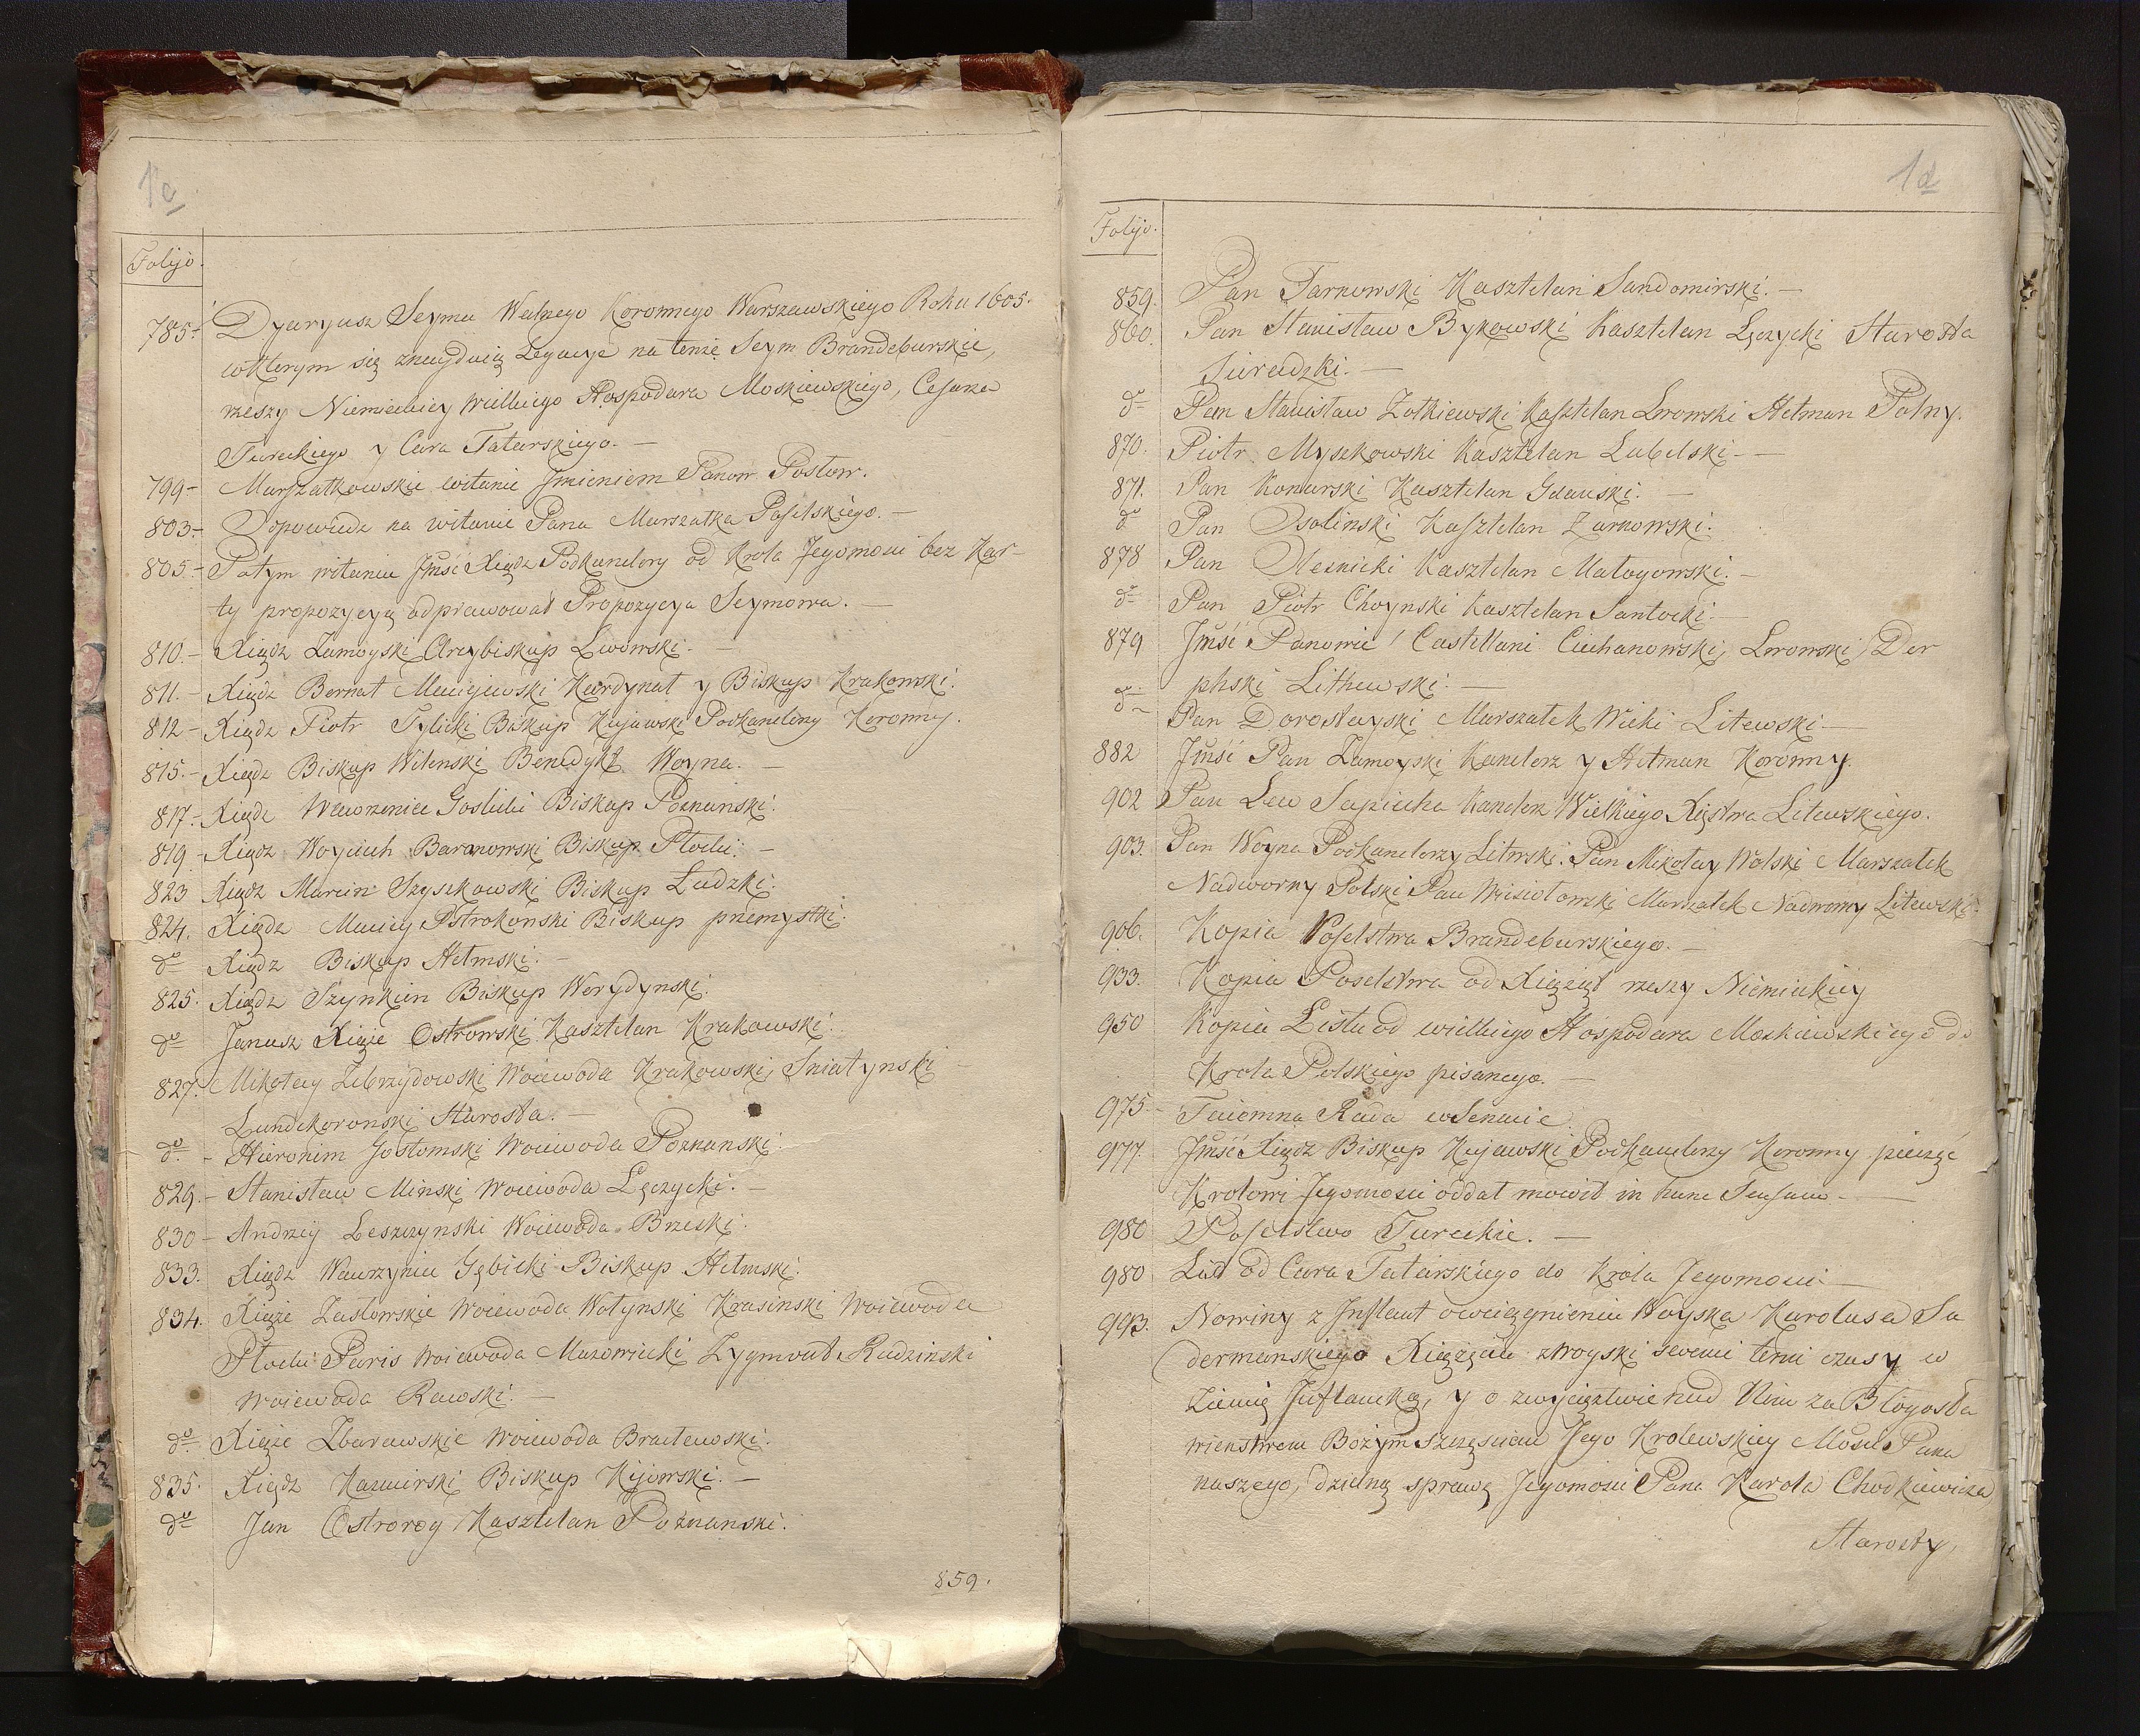 1c
Folijo.
785.- Dyaryusz Seymu Walnego Koronnego Warszawskiego Roku 1605.
wktorym się znayduią Legacye na tenże Seym Brandeburskie,
rzeszy Niemieckiey Wielkiego Hospodara Moskiewskiego, Cesarza
Tureckiego y Cara Tatarskiego. —
799- Marszałkowskie witanie Jmieniem Panow Posłow.
803- Odpowiedz na witanie Pana Marszałka Poselskiego. —
805.- Potym witaniu Jmśc Xiądz Podkanclerzy od Krola Jegomosci bez Kar-
ty propozycyą odprawował Propozycya Seymowa. —
810.- Xiądz Zamoyski Arcybiskup Lwowski. —
811.- Xiądz Bernat Macijewski Kardynał y Biskup Krakowski.
812- Xiądz Piotr Tylicki Biskup Kujawski Podkanclerzy Koronny.
815.- Xiądz Biskup Wilenski Benedykt Woyna. —
817.- Xiądz Wawrzeniec Goslicki Biskup Poznanski.
819- Xiądz Woyciech Baranowski Biskup Płocki. —
823 Xiądz Marcin Szyszkowski Biskup Ludzki.
824. Xiądz Maciey Pstrokonski Biskup przemyslki.
do Xiądz Biskup Hełmski. —
825. Xiądz Szynkien Biskup Werydynski.
do Janusz Xiąże Ostrowski Kasztelan Krakowski.
827. Mikołay Zebrzydowski Woiewoda Krakowski, Sniatynski —
Landskoronski Starosta. —
do - Hieronim Gostomski Woiewoda Poznanski.
829.- Stanisław Minski Woiewoda Lęczycki. —
830- Andrzey Leszczynski Woiewoda Brzeski.
833. Xiądz Wawrzyniec Gębicki Biskup Hełmski.
834. Xiąże Zasławskie Woiewoda Wołynski Krasinski Woiewoda
Płocki Paris Woiewoda Mazowiecki Zygmont Rudzinski
Woiewoda Rawski. —
do Xiąże Zbarawskie Woiewoda Bracławski.
835. Xiądz Kazmirski Biskup Kijowski. —
do Jan Ostrorog Kasztelan Poznanski.
859.
1d
Folijo.
859. Pan Tarnowski Kasztelan Sandomirski. —
860. Pan Stanisław Bykowski Kasztelan Lęczycki Starosta
Siradzki. —
do Pan Stanisław Zołkiewski Kasztelan Lwowski Hetman Polny.
870. Piotr Myszkowski Kasztelan Lubelski. —
871. Pan Konarski Kasztelan Gdanski. —
do Pan Osolinski Kasztelan Zarnowski.
878 Pan Olesnicki Kasztelan Małogowski. —
do Pan Piotr Choynski Kasztelan Santocki. —
879 Jmść Panowie Castellani Ciechanowski, Lwowski, Der
phski Litewski. —
do Pan Dorostayski Marszałek Wielki Litewski —
882 Jmść Pan Zamoyski Kanclerz y Hetman Koronny.
902 Pan Lew Sapieha Kanclerz Wielkiego Xięstwa Litewskiego.
903. Pan Woyna Podkanclerzy Litewski. Pan Mikołay Wolski Marszałek
Nadworny Polski Pan Wisiołowski Marszałek Nadworny Litewski.
906. Kopia Poselstwa Brandeburskiego. —
933. Kopia Poselstwa od Xiążąt rzeszy Niemieckiey
950 Kopia Listu od wielkiego Hospodara Moskiewskiego do
Krola Polskiego pisanego. —
975- Taiemna Rada w Senacie.
977. Jmść Xiądz Biskup Kujawski Podkanclerzy Koronny pieczęć
Krolowi Jegomosci oddał mowił in hunc Sensum. —
980 Poselstwo Tureckie. —
980 List od Cara Tatarskiego do Krola Jegomosci —
993. Nowiny z Inflant owciągnieniu Woyska Karolusa Su
dermanskiego Xiążęcia zwoyski swemi temi czasy w
Ziemię Inflancką, y o zwycięztwie nad Nim za Błogosła
wienstwem Bożym Szczęsciem Jego Krolewskiey Mosci Pana
naszego, dzielną sprawą Jegomosci Pana Karola Chodkiewicza
Starosty,